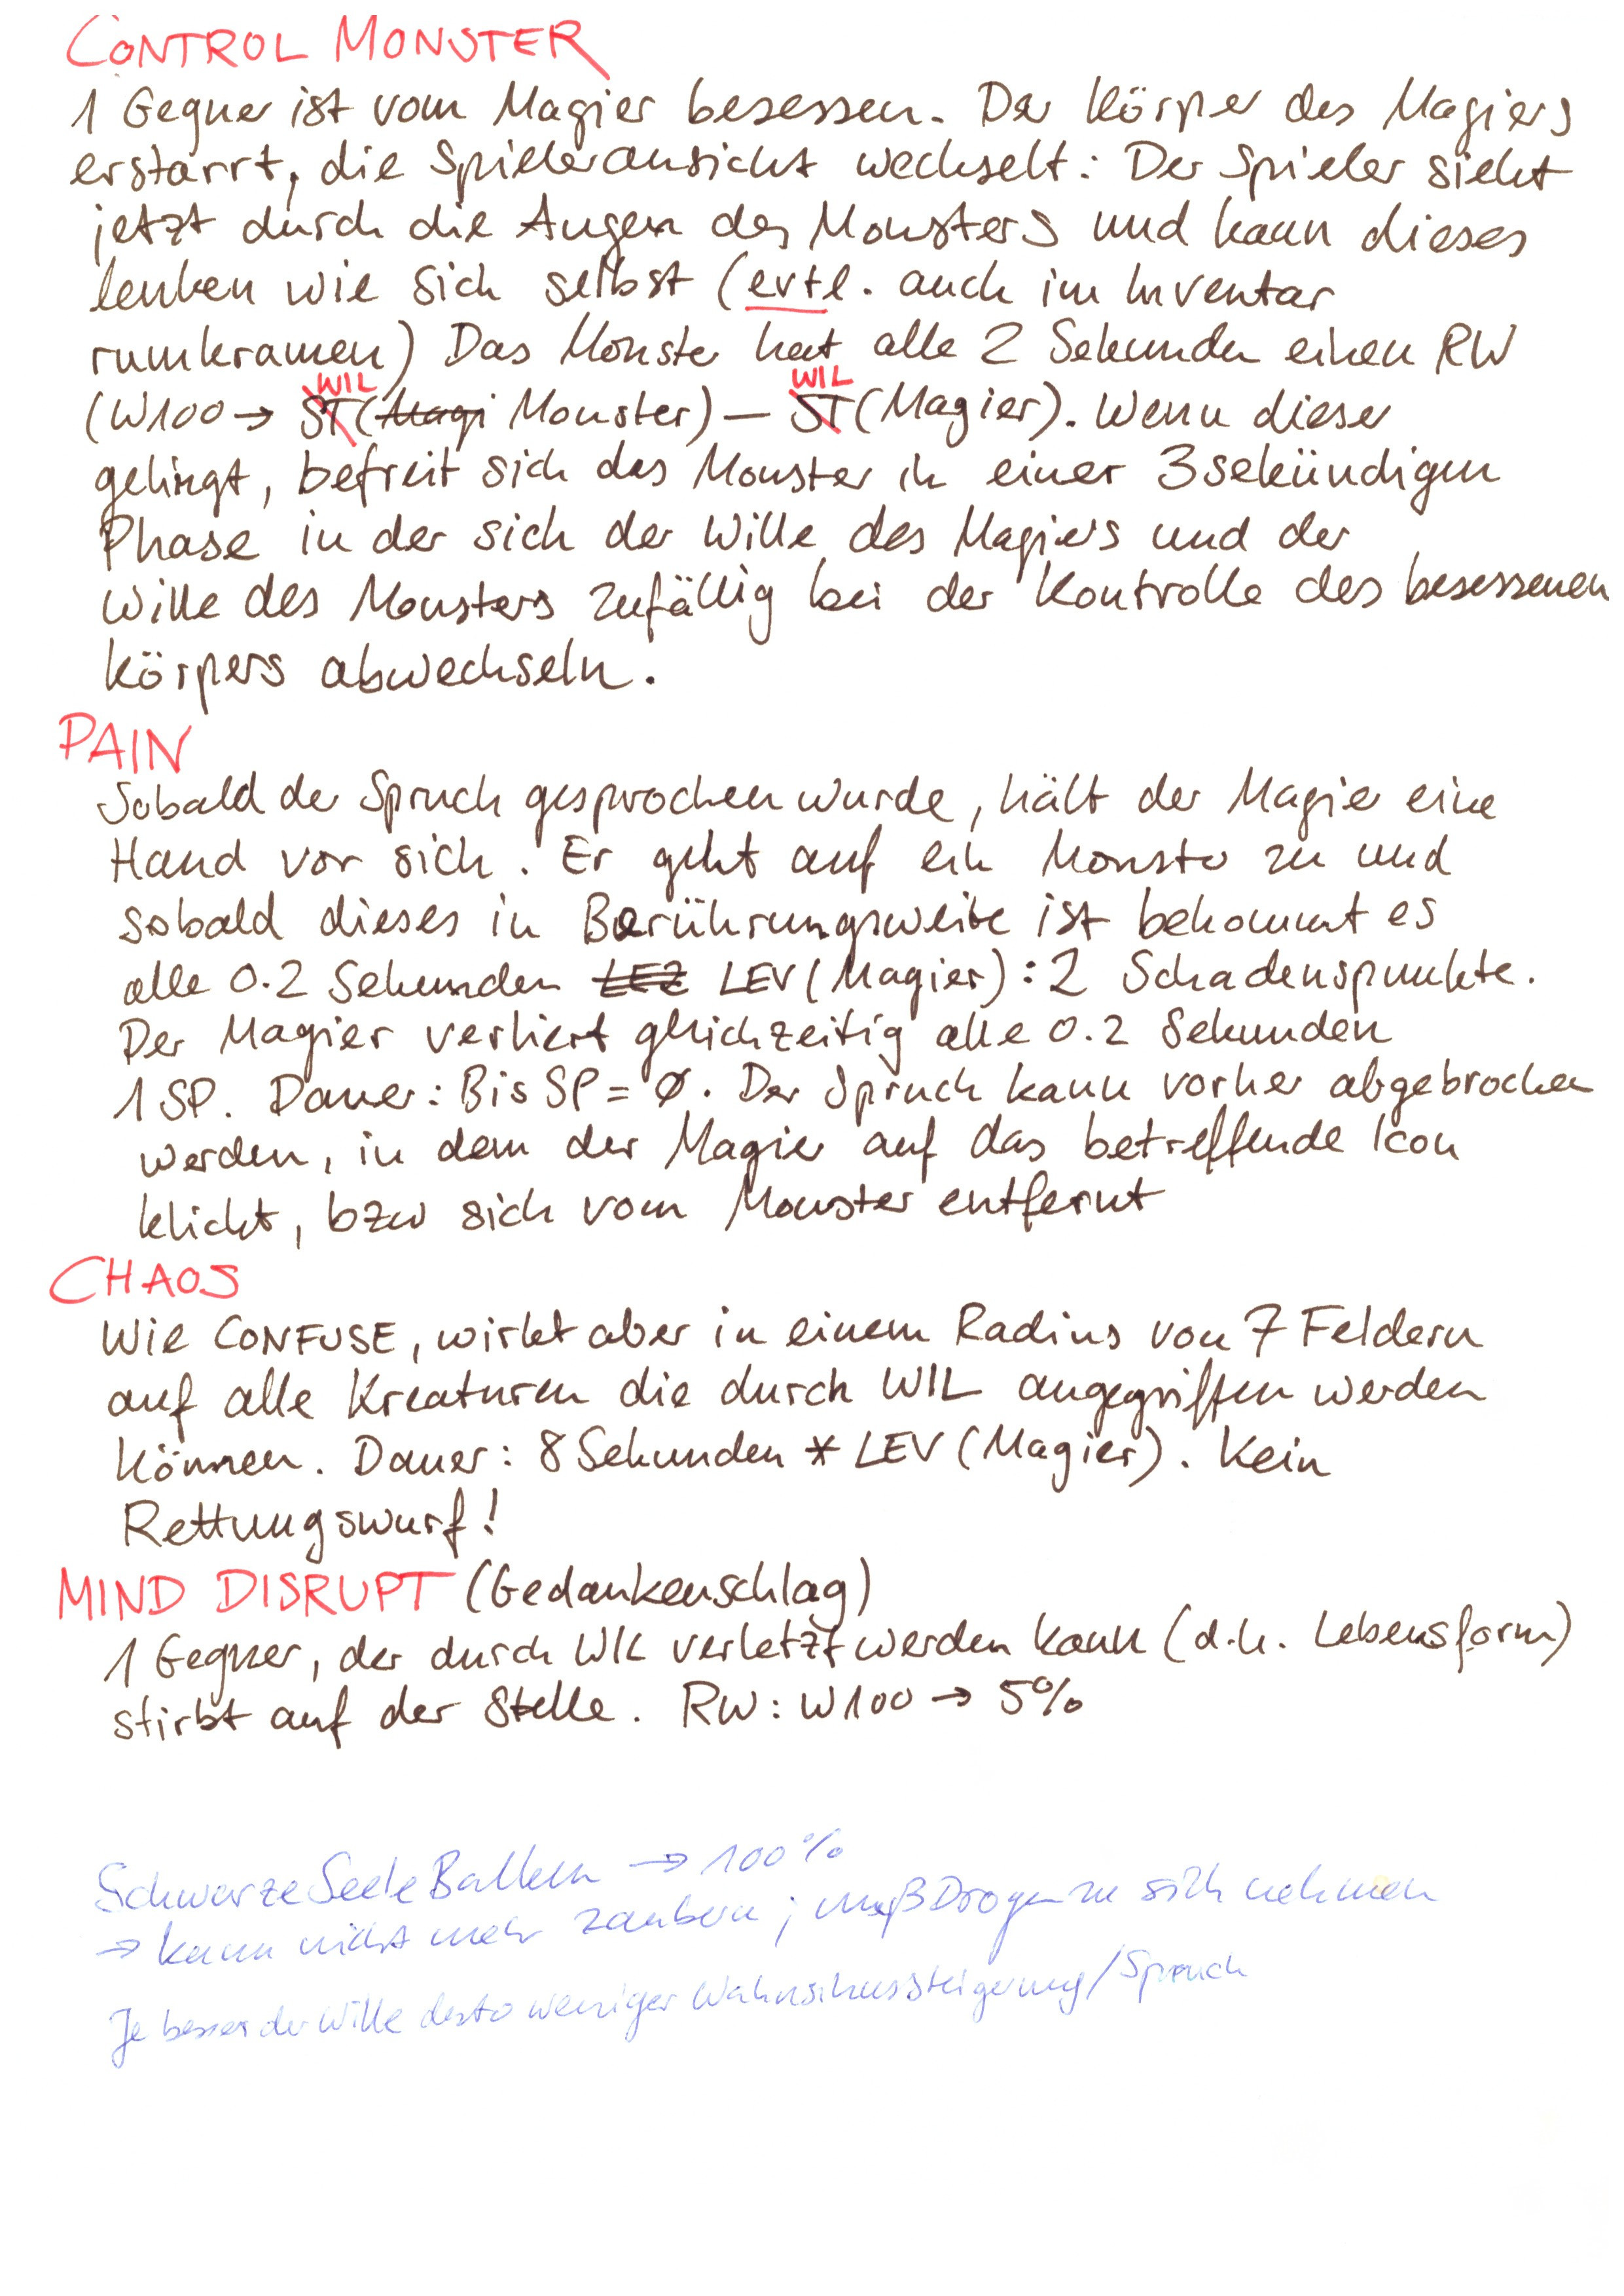 CONTROL MONSTER
1 Gegner ist vom Magier besessen. Der Körper des Magiers
erstarrt, die Spieleransicht wechselt: Der Spieler sieht
jetzt durch die Augen des Monsters und kann dieses
lenken wie sich selbst (evtl. auch im Inventar
rumkramen) Das Monster hat alle 2 Sekunden einen RW
WIL WIL
(W100 → ST (Magi Monster) — ST (Magier). Wenn dieser
gelingt, befreit sich das Monster in einer 3sekündigen
Phase in der sich der Wille des Magiers und der
Wille des Monsters zufällig bei der Kontrolle des besessenen
Körpers abwechseln.
PAIN
Sobald der Spruch gesprochen wurde, hält der Magier eine
Hand vor sich. Er geht auf ein Monster zu und
sobald dieses in Berührungsweite ist bekommt es
alle 0.2 Sekunden LEZ LEV (Magier) : 2 Schadenspunkte.
Der Magier verliert gleichzeitig alle 0.2 Sekunden
1 SP. Dauer: Bis SP = Ø. Der Spruch kann vorher abgebrochen
werden, in dem der Magier auf das betreffende Icon
klickt, bzw sich vom Monster entfernt
CHAOS
Wie CONFUSE, wirkt aber in einem Radius von 7 Feldern
auf alle Kreaturen die durch WIL angegriffen werden
können. Dauer: 8 Sekunden * LEV (Magier). Kein
Rettungswurf!
MIND DISRUPT (Gedankenschlag)
1 Gegner, der durch WIL verletzt werden kann (d.h. Lebensform)
stirbt auf der Stelle. RW: W100 → 5%
Schwarze Seele Balken → 100%
→ kann nicht mehr zaubern; muß Drogen zu sich nehmen
Je besser der Wille desto weniger Wahnsinnssteigerung/Spruch